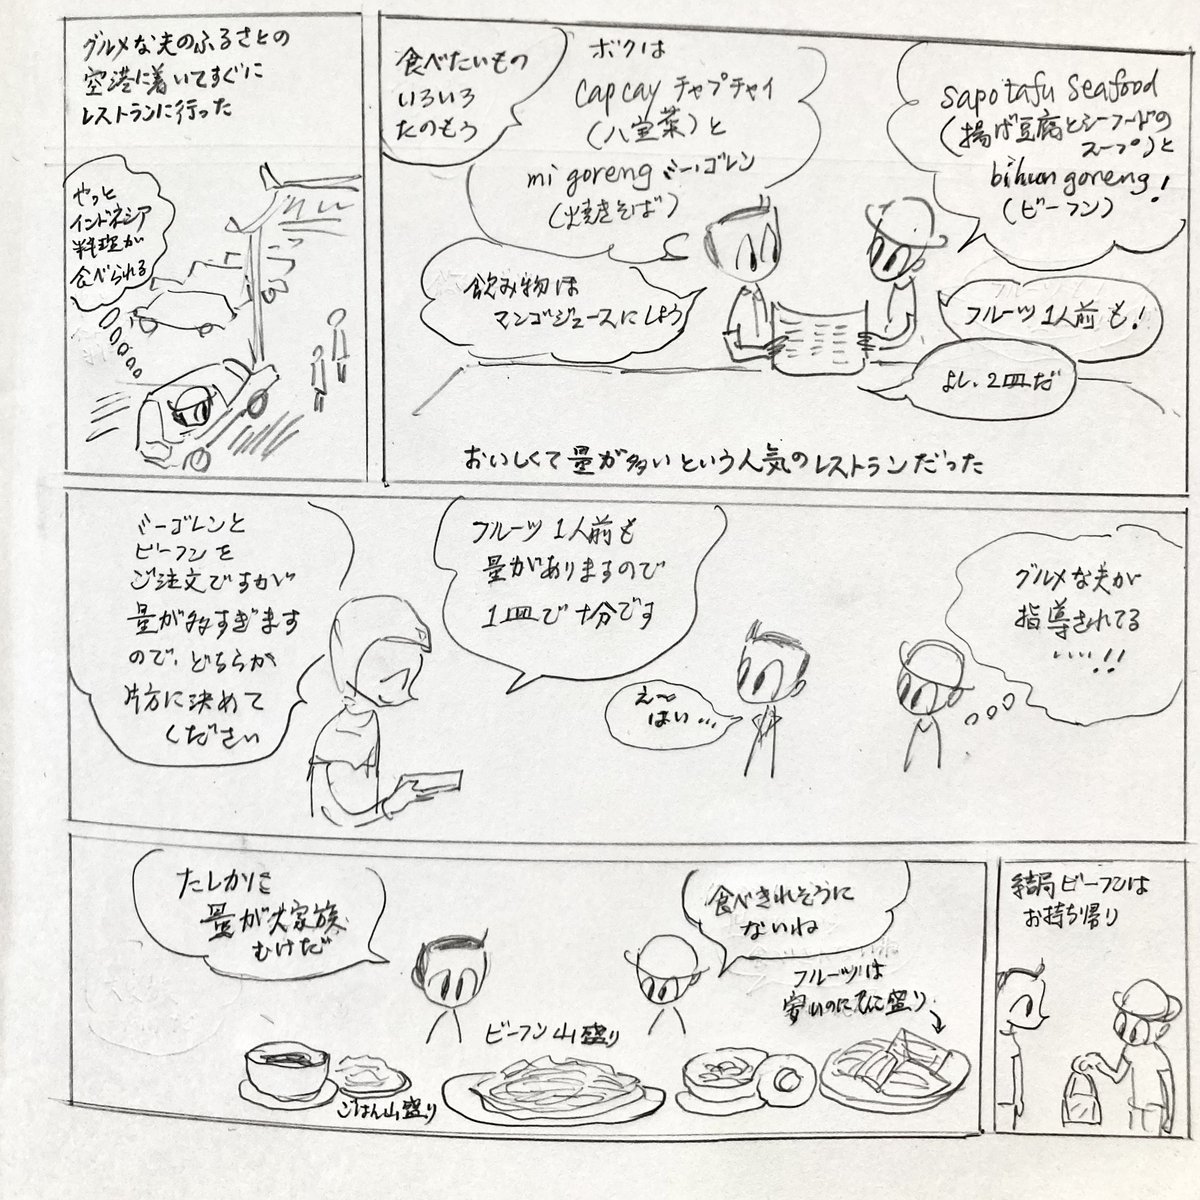 グルメな夫のふるさとの
空港に着いてすぐに
レストランに行った
やっと
インドネシア
料理が
食べられる
食べたいもの
いろいろ
たのもう
ボクは
cap cay チャプチャイ
(八宝菜)と
mi goreng ミーゴレン
(焼きそば)
sapo tafu seafood
(揚げ豆腐とシーフードの
スープ)と
bihun goreng!
(ビーフン)
飲み物は
マンゴジュースにしよう
フルーツ1人前も!
よし、2皿だ
おいしくて量が多いという人気のレストランだった
ミーゴレンと
ビーフンを
ご注文ですが
量が多すぎます
ので、どちらか
片方に決めて
ください
フルーツ1人前も
量がありますので
1皿で十分です
え〜
はい…
グルメな夫が
指導されてる
…!!
たしかに
量が大家族
むけだ
食べきれそうに
ないね
フルーツは
安いのに 盛り
ビーフン山盛り
ごはん山盛り
結局ビーフンは
お持ち帰り